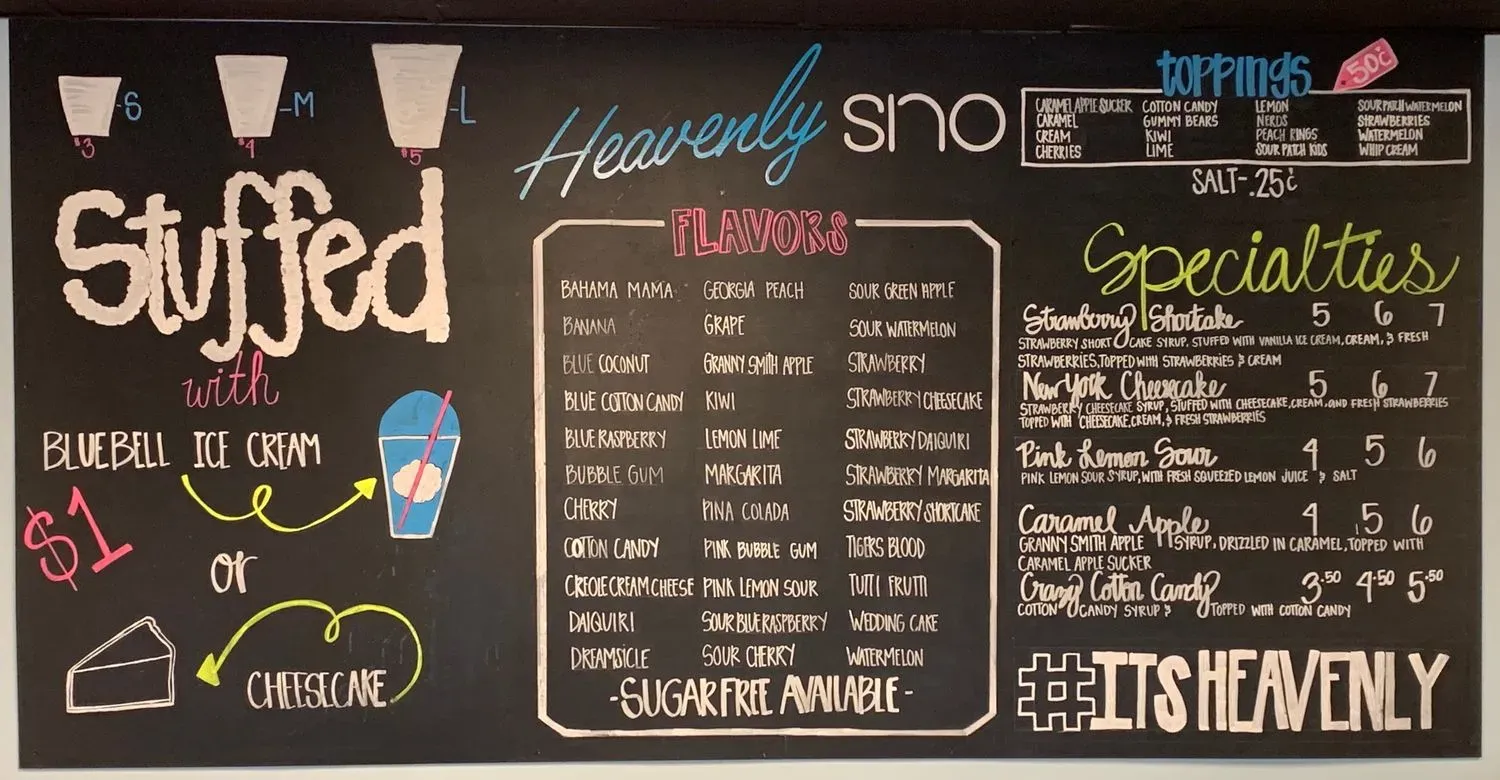 -S
-M
-L
$3
$4
$5
Stuffed
with
BLUEBELL ICE CREAM
$1
or
CHEESECAKE
Heavenly sno
FLAVORS
BAHAMA MAMA
BANANA
BLUE COCONUT
BLUE COTTON CANDY
BLUE RASPBERRY
BUBBLE GUM
CHERRY
COTTON CANDY
CREOLE CREAM CHEESE
DAIQUIRI
DREAMSICLE
GEORGIA PEACH
GRAPE
GRANNY SMITH APPLE
KIWI
LEMON LIME
MARGARITA
PINA COLADA
PINK BUBBLE GUM
PINK LEMON SOUR
SOUR BLUE RASPBERRY
SOUR CHERRY
SOUR GREEN APPLE
SOUR WATERMELON
STRAWBERRY
STRAWBERRY CHEESECAKE
STRAWBERRY DAIQUIRI
STRAWBERRY MARGARITA
STRAWBERRY SHORTCAKE
TIGERS BLOOD
TUTTI FRUTTI
WEDDING CAKE
WATERMELON
-SUGAR FREE AVAILABLE-
toppings 50¢
CARAMEL APPLE SUCKER
CARAMEL
CREAM
CHERRIES
COTTON CANDY
GUMMY BEARS
KIWI
LIME
LEMON
NERDS
PEACH RINGS
SOUR PATCH KIDS
SOUR PATCH WATERMELON
STRAWBERRIES
WATERMELON
WHIP CREAM
SALT-.25¢
Specialties
Strawberry Shortcake 5 6 7
STRAWBERRY SHORT CAKE SYRUP, STUFFED WITH VANILLA ICE CREAM, CREAM, & FRESH
STRAWBERRIES, TOPPED WITH STRAWBERRIES & CREAM
New York Cheesecake 5 6 7
STRAWBERRY CHEESECAKE SYRUP, STUFFED WITH CHEESECAKE, CREAM, AND FRESH STRAWBERRIES
TOPPED WITH CHEESECAKE, CREAM, & FRESH STRAWBERRIES
Pink Lemon Sour 4 5 6
PINK LEMON SOUR SYRUP, WITH FRESH SQUEEZED LEMON JUICE & SALT
Caramel Apple 4 5 6
GRANNY SMITH APPLE SYRUP, DRIZZLED IN CARAMEL, TOPPED WITH
CARAMEL APPLE SUCKER
Crazy Cotton Candy 3.50 4.50 5.50
COTTON CANDY SYRUP & TOPPED WITH COTTON CANDY
#ITSHEAVENLY